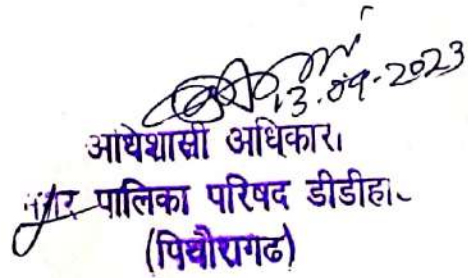 13.09.2023
आधेशासी अधिकार।
नगर पालिका परिषद डीडीहा
(पिथौरागढ)